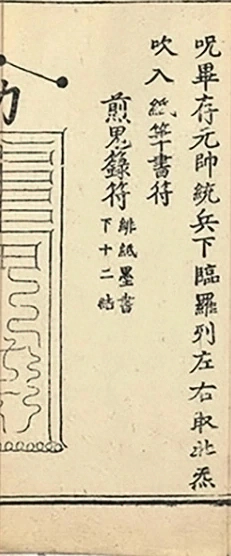 呪畢存元帥統兵下臨羅列左右取北炁
吹入紙筆書符
煎鬼籙符
緋紙墨書
下十二帖